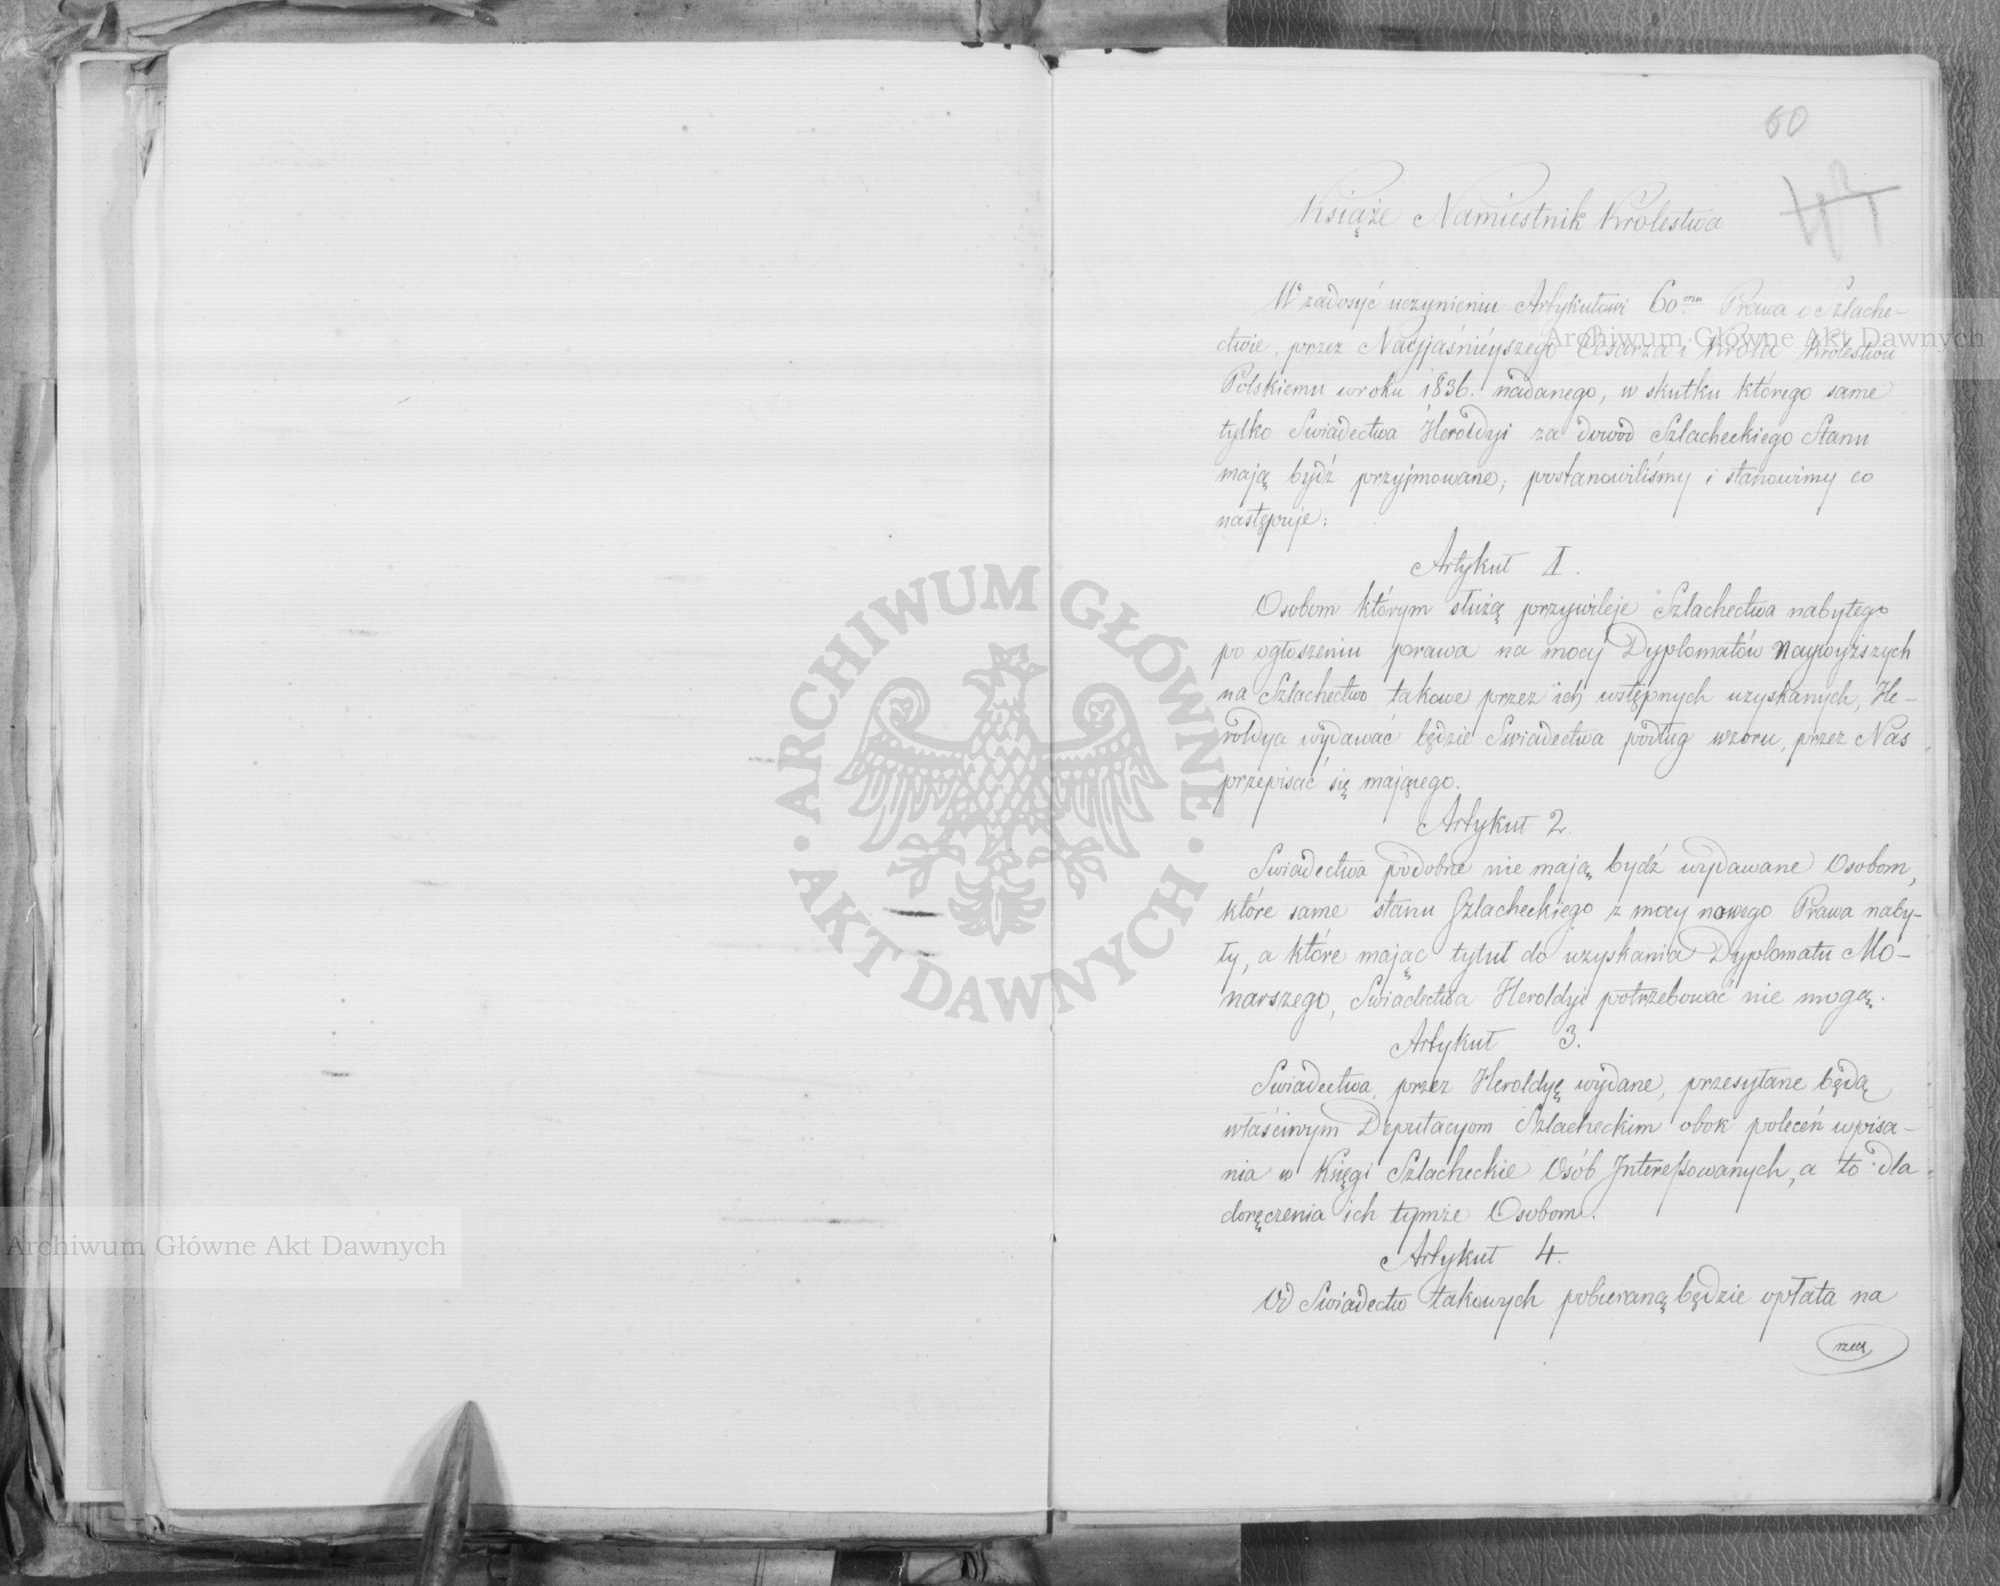 60
Książe Namiestnik Królestwa
W zadosyć uczynieniu Artykułowi 60.mu Prawa o Szlache-
ctwie, przez Najjaśniéyszego Cesarza i Króla Królestwu
Polskiemu w roku 1836. nadanego, w skutku którego same
tylko Swiadectwa Heroldyi za dowód Szlacheckiego Stanu
mają bydź przyjmowane; postanowiliśmy i stanowimy co
następuje:
Artykuł I.
Osobom którym służą przywileje Szlachectwa nabytego
po ogłoszeniu prawa na mocy Dyplomatów Naywyższych
na Szlachectwo takowe przez ich wstępnych uzyskanych, He-
roldya wydawać będzie Swiadectwa podług wzoru, przez Nas
przepisać się mającego.
Artykuł 2.
Swiadectwa podobne nie mają bydź wydawane Osobom,
które same stanu Szlacheckiego z mocy nowego Prawa naby-
ły, a które mając tytuł do uzyskania Dyplomatu Mo-
narszego, Swiadectwa Heroldyi potrzebować nie mogą.
Artykuł 3.
Swiadectwa, przez Heroldyę wydane, przesyłane będą
właściwym Deputacyom Szlacheckim obok poleceń wpisa-
nia w Księgi Szlacheckie Osób Interessowanych, a to dla
doręczenia ich tymże Osobom.
Artykuł 4.
Od Swiadectw takowych pobieraną będzie opłata na
rzecz
Archiwum Główne Akt Dawnych
ARCHIWUM GŁÓWNE · AKT DAWNYCH ·
Archiwum Główne Akt Dawnych